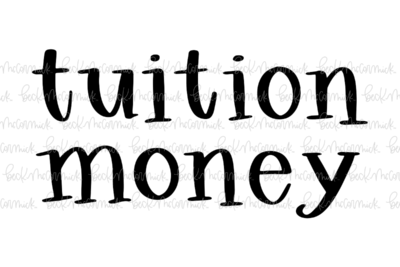 tuition
money